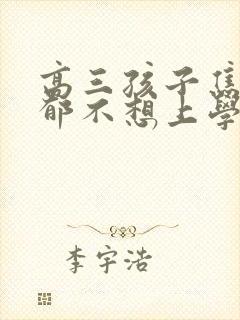 高三孩子
都不想上學
李宇浩